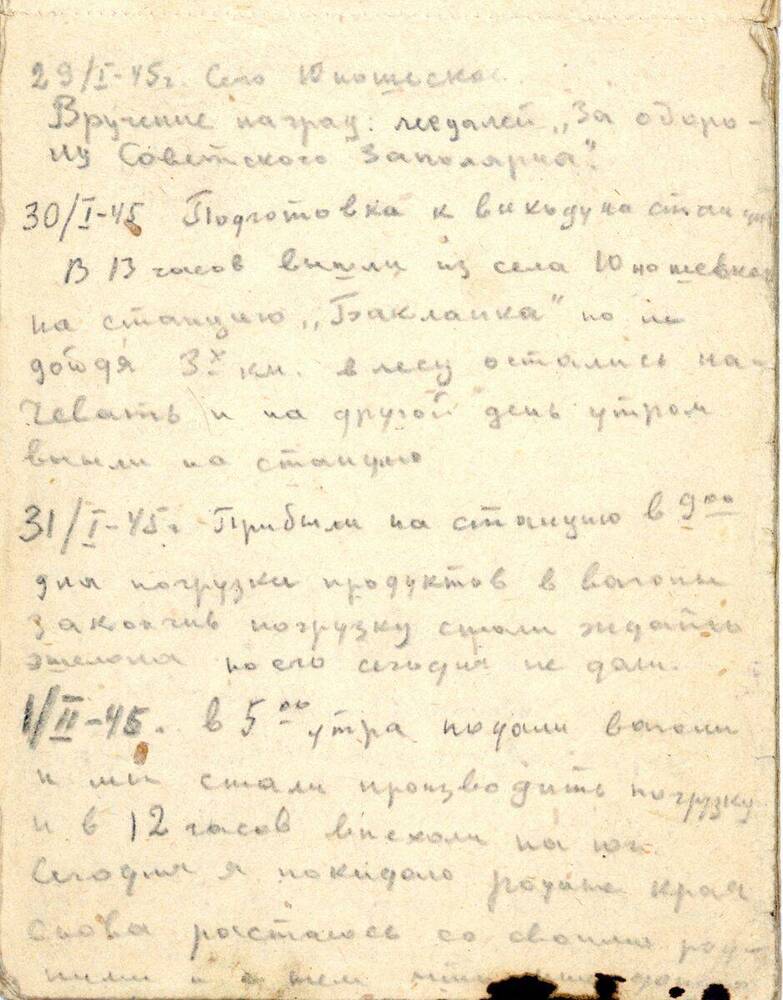 29/I-45г. Село Юношеское.
Вручение наград: медалей „За оборо-
ну Советского Заполярья".
30/I-45 Подготовка к виходу на станцию
В 13 часов вышли из села Юношевское
на станцию „Бакланка" но не
дойдя 3х км. в лесу остались на-
чевать и на другой день утром
вышли на станцию
31/I-45г. Прибыли на станцию в 9 00
для погрузки продуктов в вагоны
закончив погрузку стали ждать
эшелона но его сегодня не дали.
1/II-45. в 5 00 утра подали вагоны
и мы стали производить погрузку
и в 12 часов виехали на юг.
Сегодня я покидаю родные края
снова растаюсь со своими род-
ными и